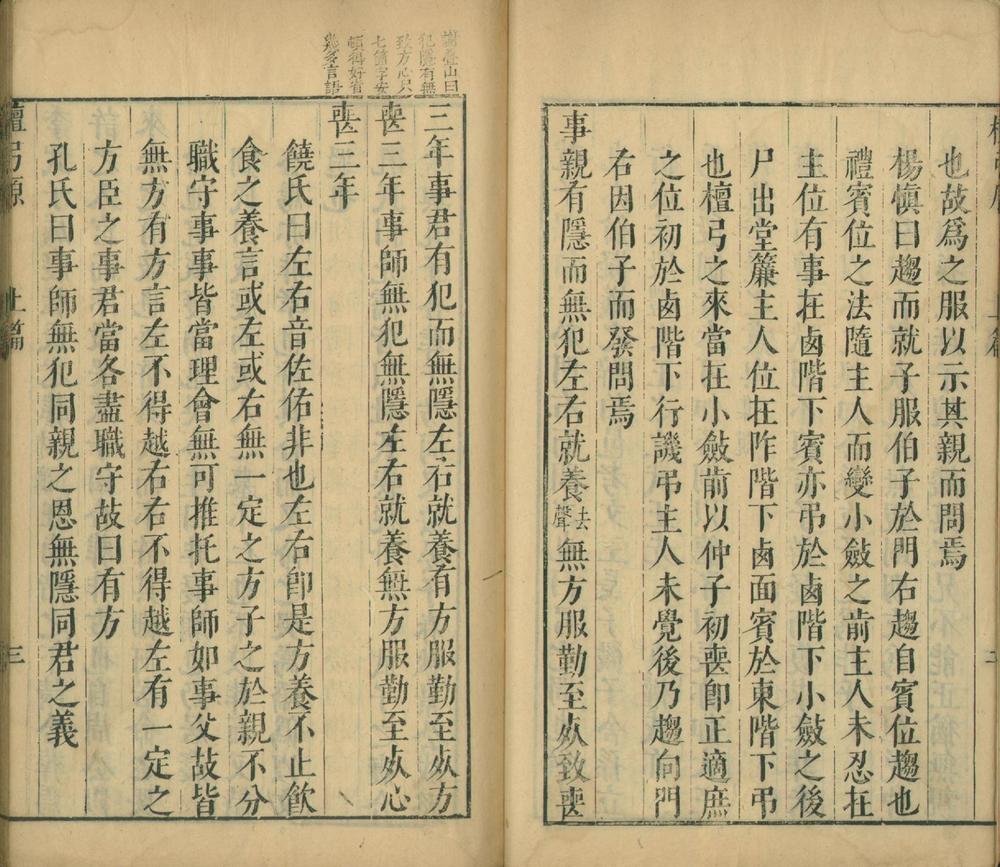 也故爲之服以示其親而問焉
楊愼曰趨而就子服伯子於門右趨自賓位趨也
禮賓位之法隨主人而變小斂之前主人未忍在
主位有事在卤階下賓亦弔於卤階下小斂之後
尸出堂簾主人位在阼階下卤面賓於東階下弔
也檀弓之來當在小斂前以仲子初喪卽正適庶
之位初於卤階下行譏弔主人未覺後乃趨向門
右因伯子而發問焉
事親有隱而無犯左右就養去聲無方服勤至𣦸致喪
謝疊山曰
犯隱有無
致方心只
七箇字安
頓稱好省
幾多言語
三年事君有犯而無隱左右就養有方服勤至𣦸方
喪三年事師無犯無隱左右就養無方服勤至𣦸心
喪三年
饒氏曰左右音佐佑非也左右卽是方養不止飮
食之養言或左或右無一定之方子之於親不分
職守事事皆當理會無可推托事師如事父故皆
無方有方言左不得越右右不得越左有一定之
方臣之事君當各盡職守故曰有方
孔氏曰事師無犯同親之恩無隱同君之義
檀弓原 上篇 三